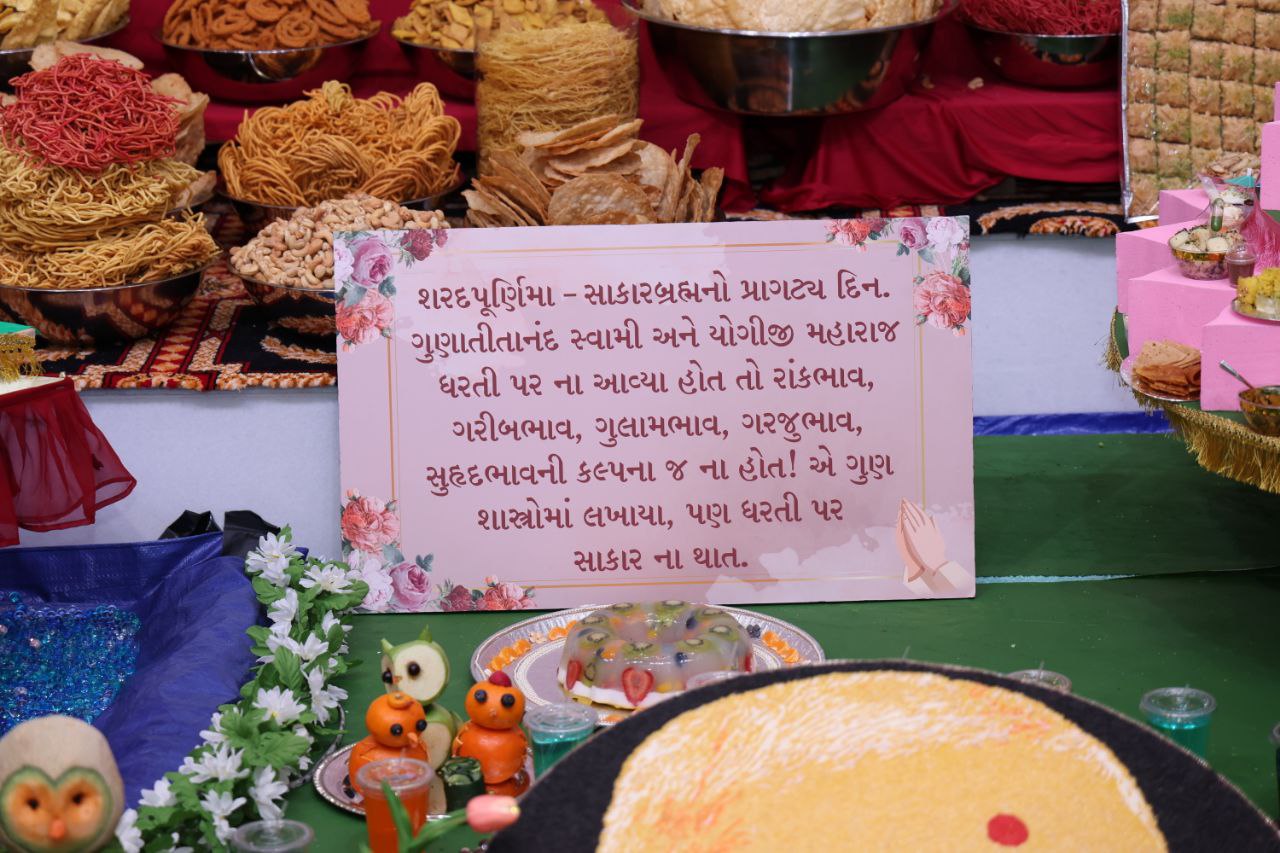 શરદપૂર્ણિમા – સાકારબ્રહ્મનો પ્રાગટ્ય દિન.
ગુણાતીતાનંદ સ્વામી અને યોગીજી મહારાજ
ધરતી પર ના આવ્યા હોત તો રાંકભાવ,
ગરીબભાવ, ગુલામભાવ, ગરજુભાવ,
સુહૃદભાવની કલ્પના જ ના હોત! એ ગુણ
શાસ્ત્રોમાં લખાયા, પણ ધરતી પર
સાકાર ના થાત.